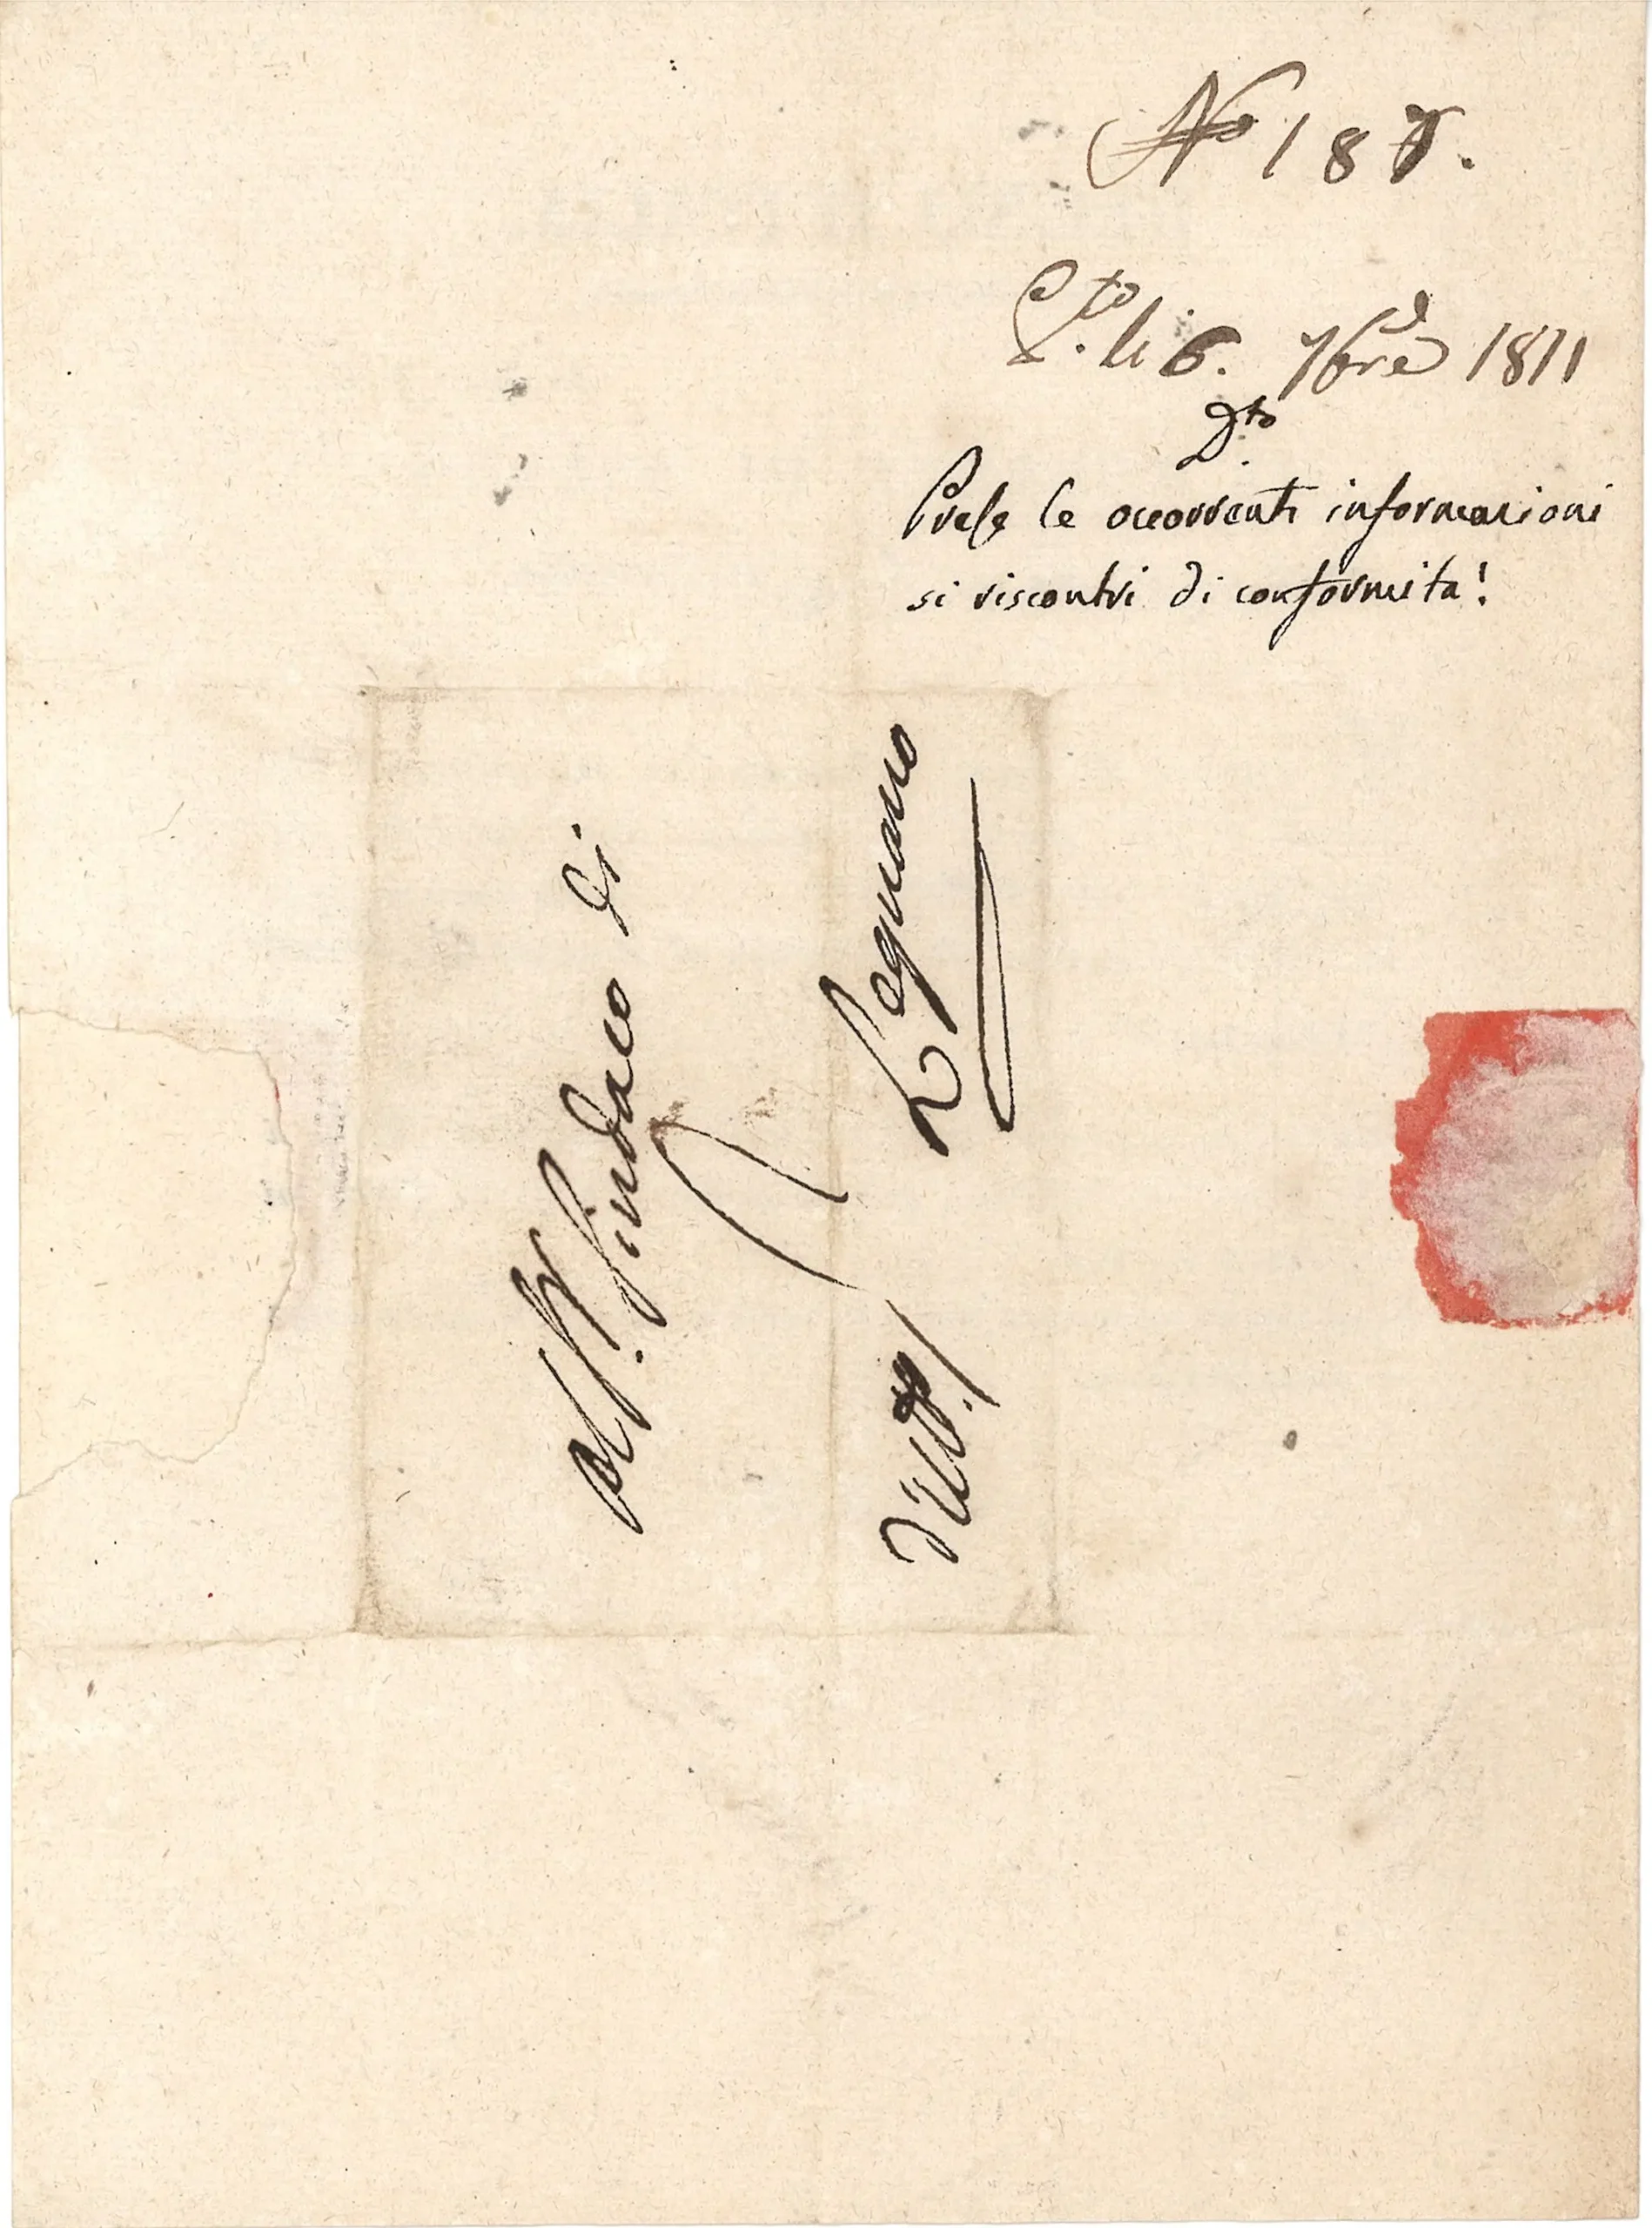 No 187.
P.to li 6. 7bre 1811
D.to
Prese le occorrenti informazioni
si riscontri di conformita!
Al Sig. Sindaco di
Legnano